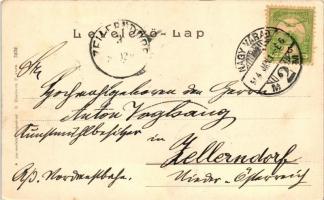 Levelező-Lap
ZELLERNDORF
NAGYVÁRAD
Sr.
Hochwohlgeboren den Herrn
Anton Voglsang
Kunstmühlbesitzer
in
Zellerndorf
Nieder-Österreich
Nordwestbahn.